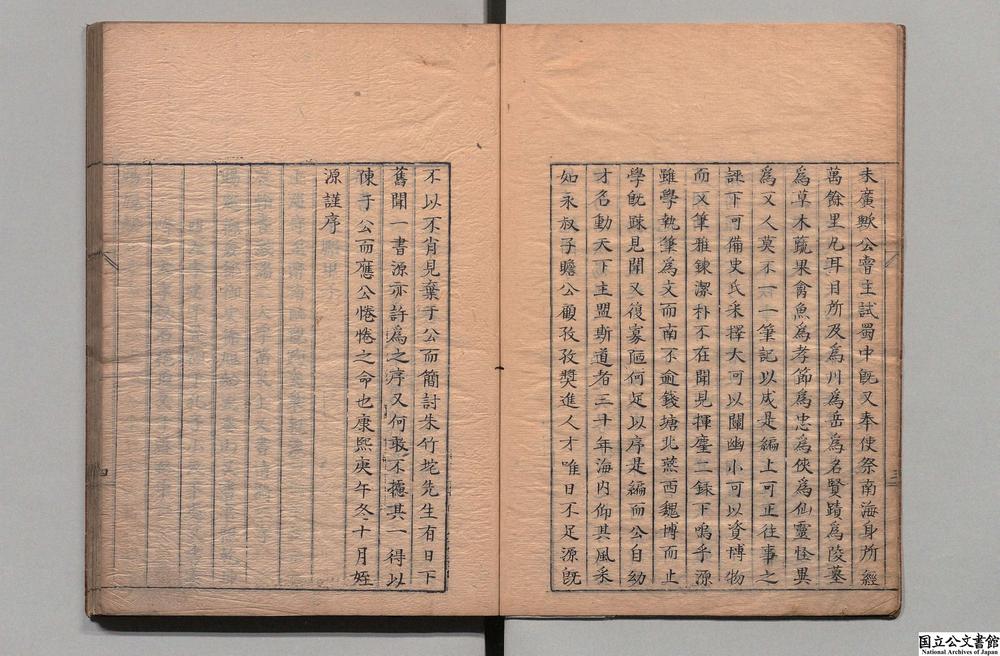 未廣歟公嘗主試蜀中既又奉使祭南海身所經
萬餘里凡耳目所及為川為岳為名賢蹟為陵墓
為草木蔬果禽魚為孝節為忠為俠為仙靈怪異
為文人莫不一一筆記以成是編上可正往事之
誣下可備史氏采擇大可以闡幽小可以資博物
而文筆雅鍊潔朴不在聞見揮麈二錄下嗚乎源
雖學執筆為文而南不逾錢塘北燕西魏博而止
學既踈見聞又復寡陋何足以序是編而公自幼
才名動天下主盟斯道者三十年海内仰其風采
如永叔子瞻公顧孜孜奬進人才唯日不足源既
不以不肖見棄于公而簡討朱竹垞先生有日下
舊聞一書源亦許為之序又何敢不攄其一得以
陳于公而應公惓惓之命也康熙庚午冬十月姪
源謹序
三
四
国立公文書館
National Archives of Japan